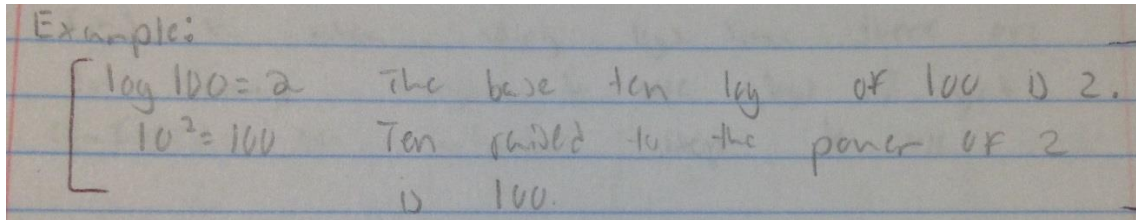 Example:
log 100 = 2 The base ten log of 100 is 2.
10² = 100 Ten raised to the power of 2
is 100.